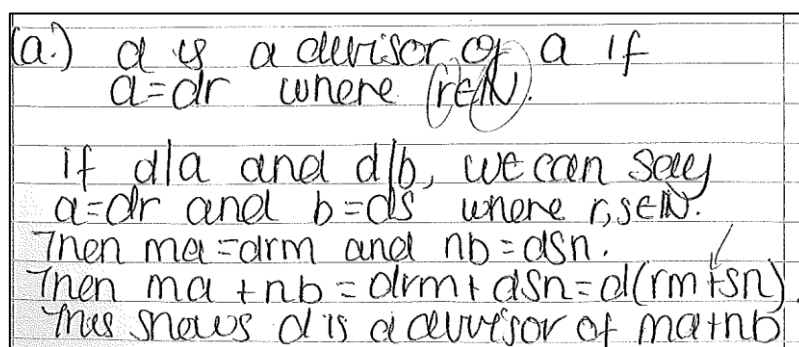 (a.) d is a divisor of a if
a=dr where r∈ℕ.
If d|a and d|b, we can say
a=dr and b=ds where r,s∈ℕ.
Then ma=drm and nb=dsn.
Then ma+nb=drm+dsn=d(rm+sn).
This shows d is a divisor of ma+nb